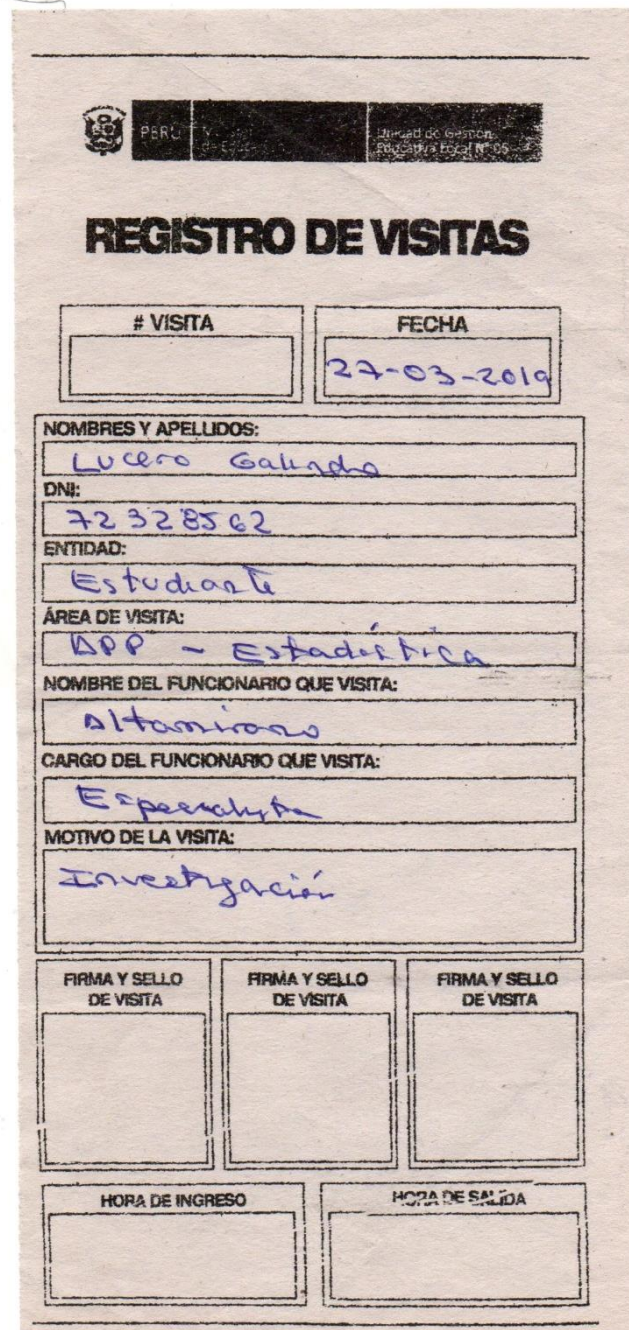 PERÚ
Unidad de Gestión
Educativa Local N° 05
REGISTRO DE VISITAS
# VISITA
FECHA
27-03-2019
NOMBRES Y APELLIDOS:
Lucero Galindo
DNI:
72328562
ENTIDAD:
Estudiante
ÁREA DE VISITA:
APP - Estadística
NOMBRE DEL FUNCIONARIO QUE VISITA:
Altamirano
CARGO DEL FUNCIONARIO QUE VISITA:
Especialista
MOTIVO DE LA VISITA:
Investigación
FIRMA Y SELLO
DE VISITA
FIRMA Y SELLO
DE VISITA
FIRMA Y SELLO
DE VISITA
HORA DE INGRESO
HORA DE SALIDA